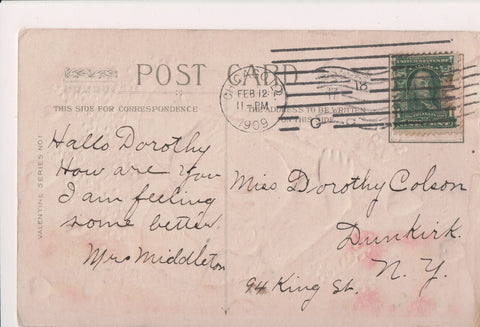 POST CARD
THIS SIDE FOR CORRESPONDENCE
THE ADDRESS TO BE WRITTEN
ON THIS SIDE
FEB 12
11 PM
1909
VALENTINE SERIES NO 1
Hallo Dorothy
How are you
I am feeling
some better.
Mrs Middleton
Miss Dorothy Colson
Dunkirk.
N. Y.
94 King St.